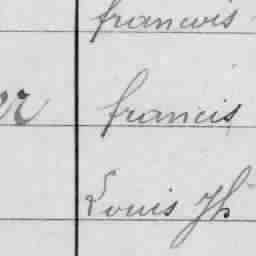 francois
er francis
Louis Jh